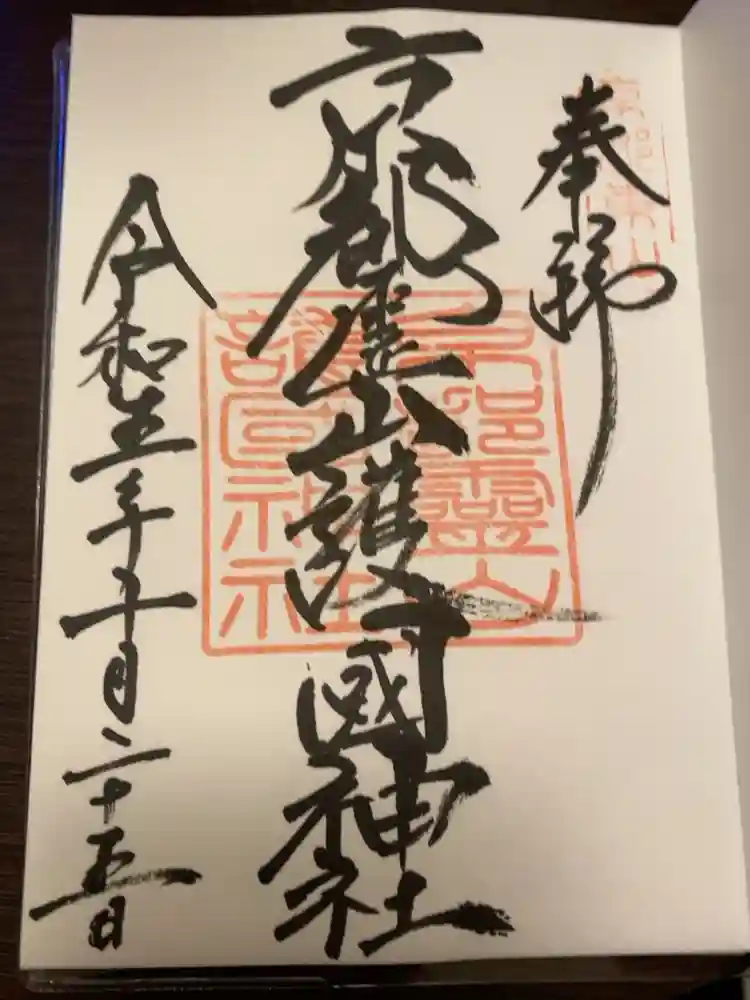 奉拝
京都霊山護國神社
京都靈山
護國神社
令和五年十月二十五日